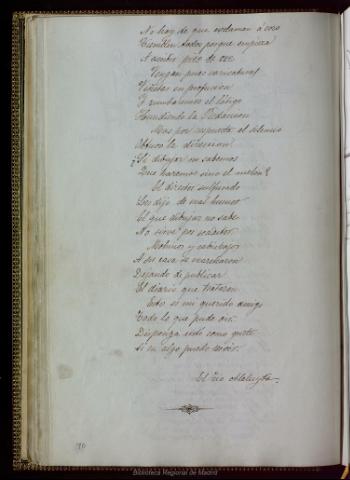 No hay de que exclaman á coro
Tiemblen todos porque empieza
A
Vengan pues caricaturas
Viñetas en profusion
Y zumbaremos el látigo
Hundiendo la Redaccion
Mas por respuesta el silencio
Obtuvo la direccion
¿Si dibujar no sabemos
Que haremos sino el melon?
El director sulfurado
Les dijo de mal humor
El que dibujar no sabe
No sirve por
Mohinos y cabizbajos
A su casa se marcharon
Dejando de publicar
El diario que trataron
Esto es mi querido amigo
Todo lo que pude oir.
Disponga usté como guste
Si en algo puedo servir.
El tio
70
Biblioteca Regional de Madrid